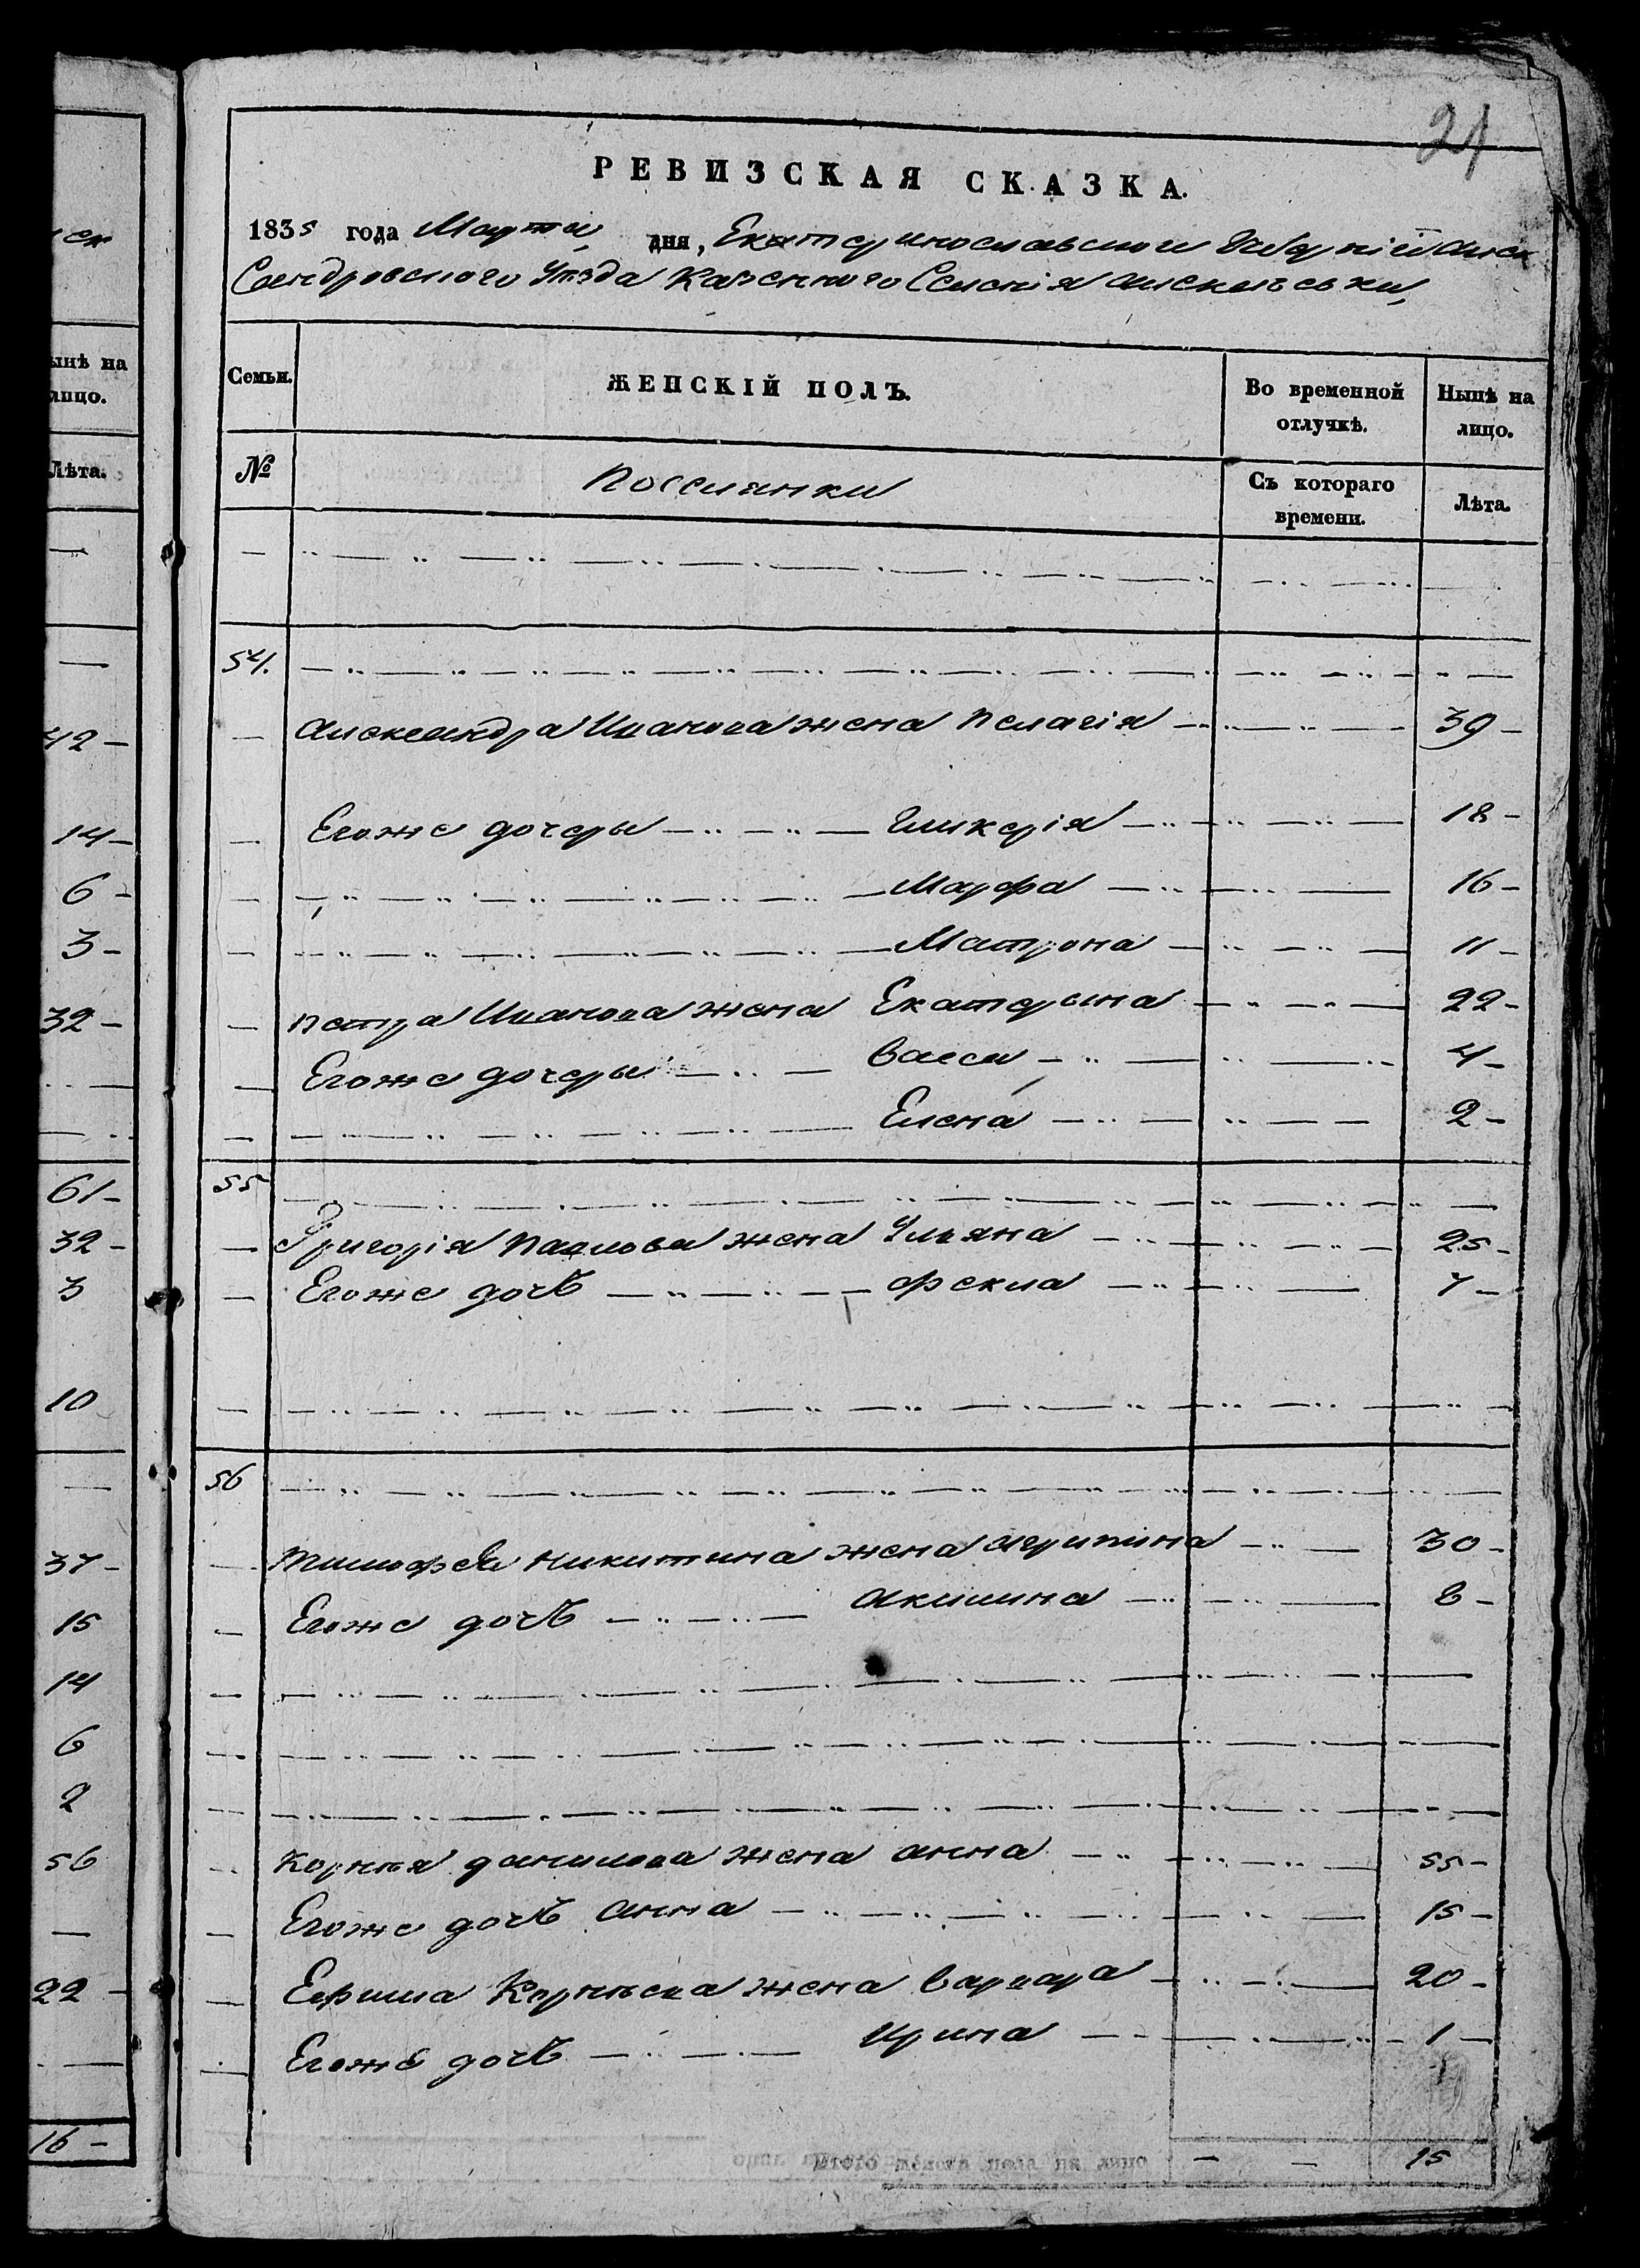 ск
ынѣ на
лицо.
Лѣта.
42 -
14 -
6 -
3 -
32 -
61 -
32 -
3
10
37 -
15
14
6
2
56
22 -
16 -
21
РЕВИЗСКАЯ СКАЗКА.
1835 года Марта дня, Екатеринославской Губерніи Алек
сандровскаго Уѣзда Казеннаго Селенія
Семьи. ЖЕНСКІЙ ПОЛЪ. Во временной отлучкѣ. Нынѣ на лицо.
№ Поселянки Съ котораго времени. Лѣта.
54.
Александра Иванова жена Пелагія 39 -
Егоже дочери Гликерія 18 -
Марфа 16 -
Матрона 11 -
Петра Иванова жена Екатерина 22 -
Егоже дочери Васса 4 -
Елена 2 -
55
Григорія Павлова жена Ульяна 25 -
Егоже дочь Фекла 7 -
56
Тимофея Никитина жена Агрипина 30 -
Егоже дочь Акилина 8 -
Корнѣя Данилова жена Анна 55 -
Егоже дочь Анна 15 -
Ефима Корнѣева жена Варвара 20 -
Егоже дочь Ирина 1 -
15